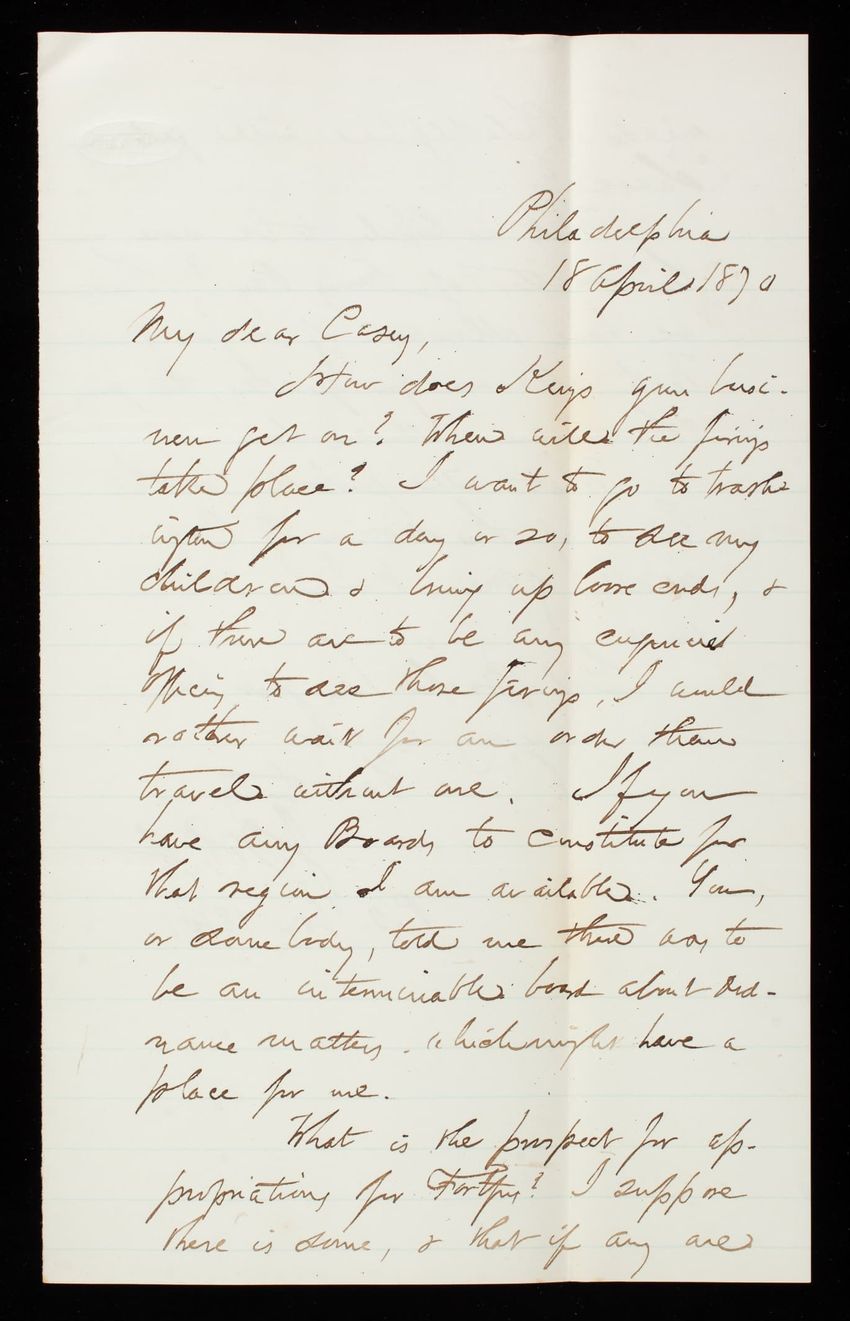 Philadelphia
18 April 1870
My dear Casey,
How does Kings gun busi-
ness get on? When will the firings
take place? I want to go to Wash-
ington for a day or so, to see my
children & bring up loose ends, &
if there are to be any
to see those firings, I would
rather wait for an order than
travel without one. If you
have any Boards to constitute for
that region I am available. You,
or somebody, told me there was to
be an interminable board about Ord-
nance matters. which might have a
place for me.
What is the prospect for ap-
propriations for Fortfns? I suppose
there is some, & that if any are